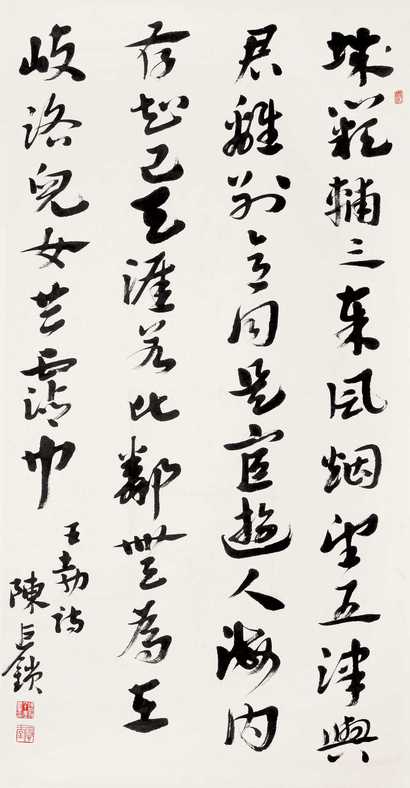 城闕輔三秦風烟望五津與
君離別意同是宦遊人海內
存知己天涯若比鄰無為在
岐路兒女共霑巾
王勃詩
陳巨鎖